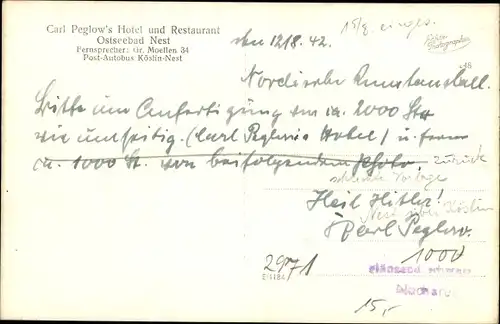 Carl Peglow's Hotel und Restaurant
Ostseebad Nest
Fernsprecher: Gr. Moellen 34
Post-Autobus Köslin-Nest
15/8. einges.
Echte Photographie
den 12/8. 42.
Nordische Kunstanstalt.
Bitte um Anfertigung von ca. 2000 Stck
wie umseitig. (Carl Peglow's Hotel) u. ferner
ca. 1000 St. von beifolgendem Photo, zurück
schlechte Vorlage
Heil Hitler!
Nest über Köslin
Carl Peglow.
2971
1000
glänzend schwarz
Nachar
15,-